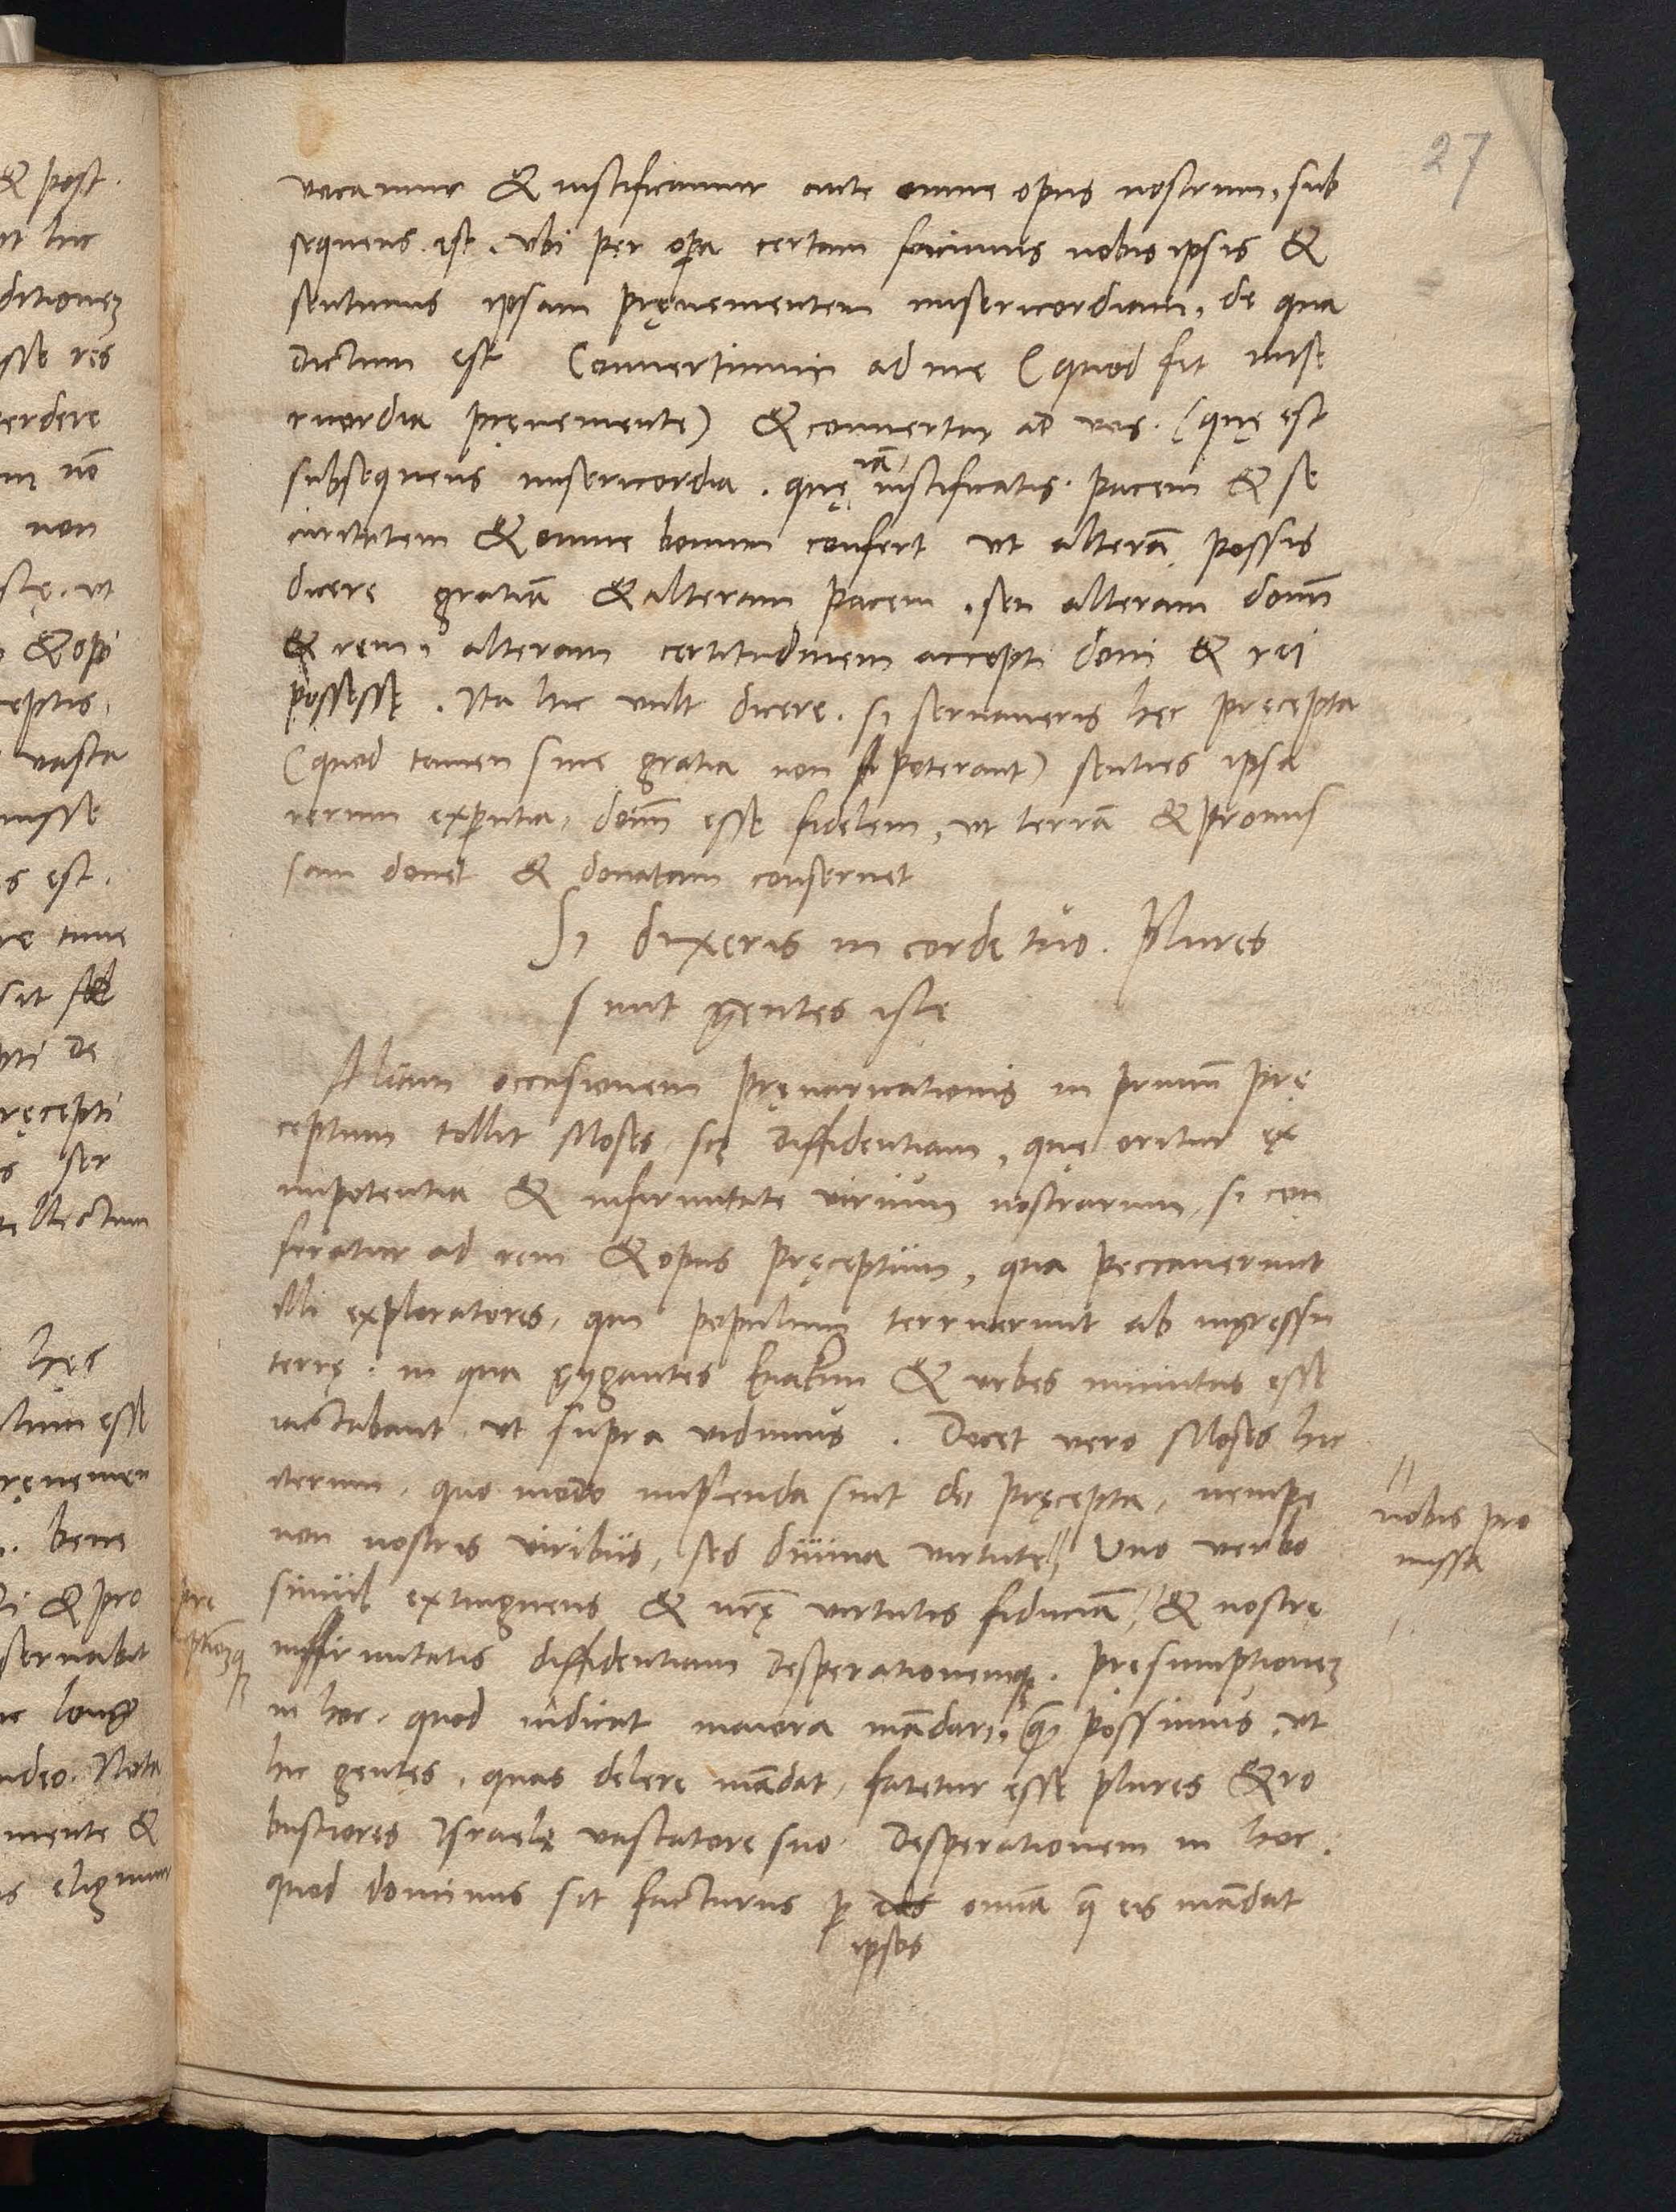 27
vocamur & iustificamur ante omne opus nostrum, sub
sequens est, vbi per opa certam facimus nobis ipsis &
sentimus ipsam pręuenientem misericordiam, de qua
dictum est Conuertimini ad me (quod fit mise
ricordia pręueniente) & conuertar ad vos. (quę est
subsequens misericordia. quę iã iustificatis pacem & se
curitatem & omne bonum confert vt alterã possis
dicere gratiã & alteram pacem, seu alteram donũ
& rem, alteram certitudinem accepti doni & rei
possessę. Ita hic vult dicere. si seruaueris hęc pręcepta
(quod tamen sine gratia non poterant) senties ipsa
rerum exp̱ientia, dom̃ esse fidelem, vt terrã & promis
sam donet & donatam conseruet
Si dixeris in corde tuo. Plures
sunt gentes istę
Aliam occasionem pręuaricationis in primũ prę
ceptum tollit Moses, scz diffidentiam, quę oritur ex
impotentia & infirmitate virium nostrarum, si con
feratur ad rem & opus pręceptum, qua peccauerunt
illi exploratores, qui populum terruerunt ab ingressu
terrę. in qua gygantes Enakim & vrbes munitas esse
iactabant, vt supra vidimus. Docet vero Moses hic
iterum, quo modo implenda sint dei pręcepta, nempe
non nostris viribus, sed diuina virtute // Vno verbo
// nobis pro
missa
simul extinguens & nrę virtutis fiduciã, & nostrę
infirmitatis diffidentiam desperationemqȝ. pręsumptionem
in hoc, quod indicat maiora mãdari, q̃ possimus, vt
hic gentes, quas delere mãdat, fatetur esse plures & ro
bustiores Israele vastatore suo. Desperationem in hoc.
quod dominus sit facturus p̱ eos omnia q̃ eis mãdat
ipsos